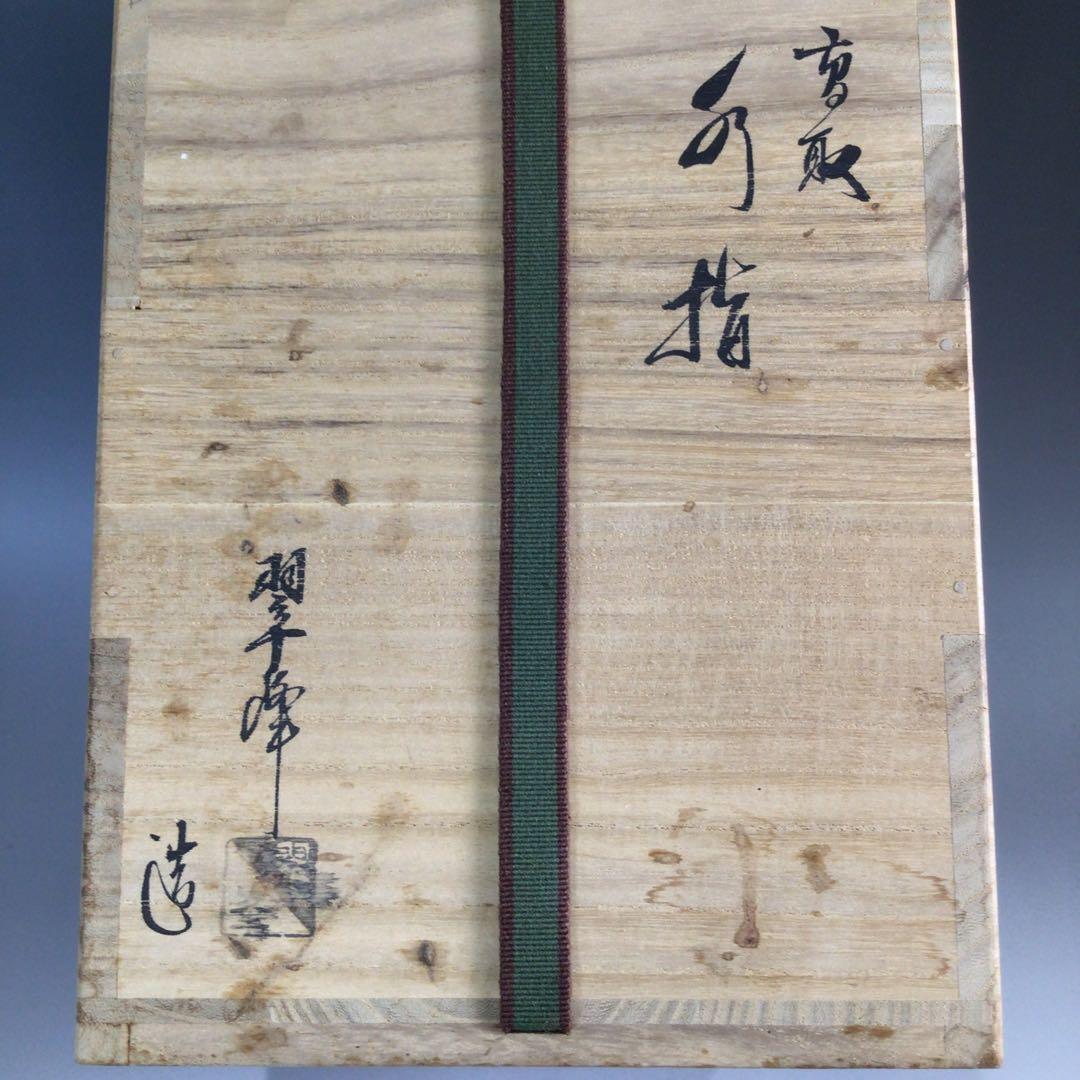 高取
水指
翠峰
造